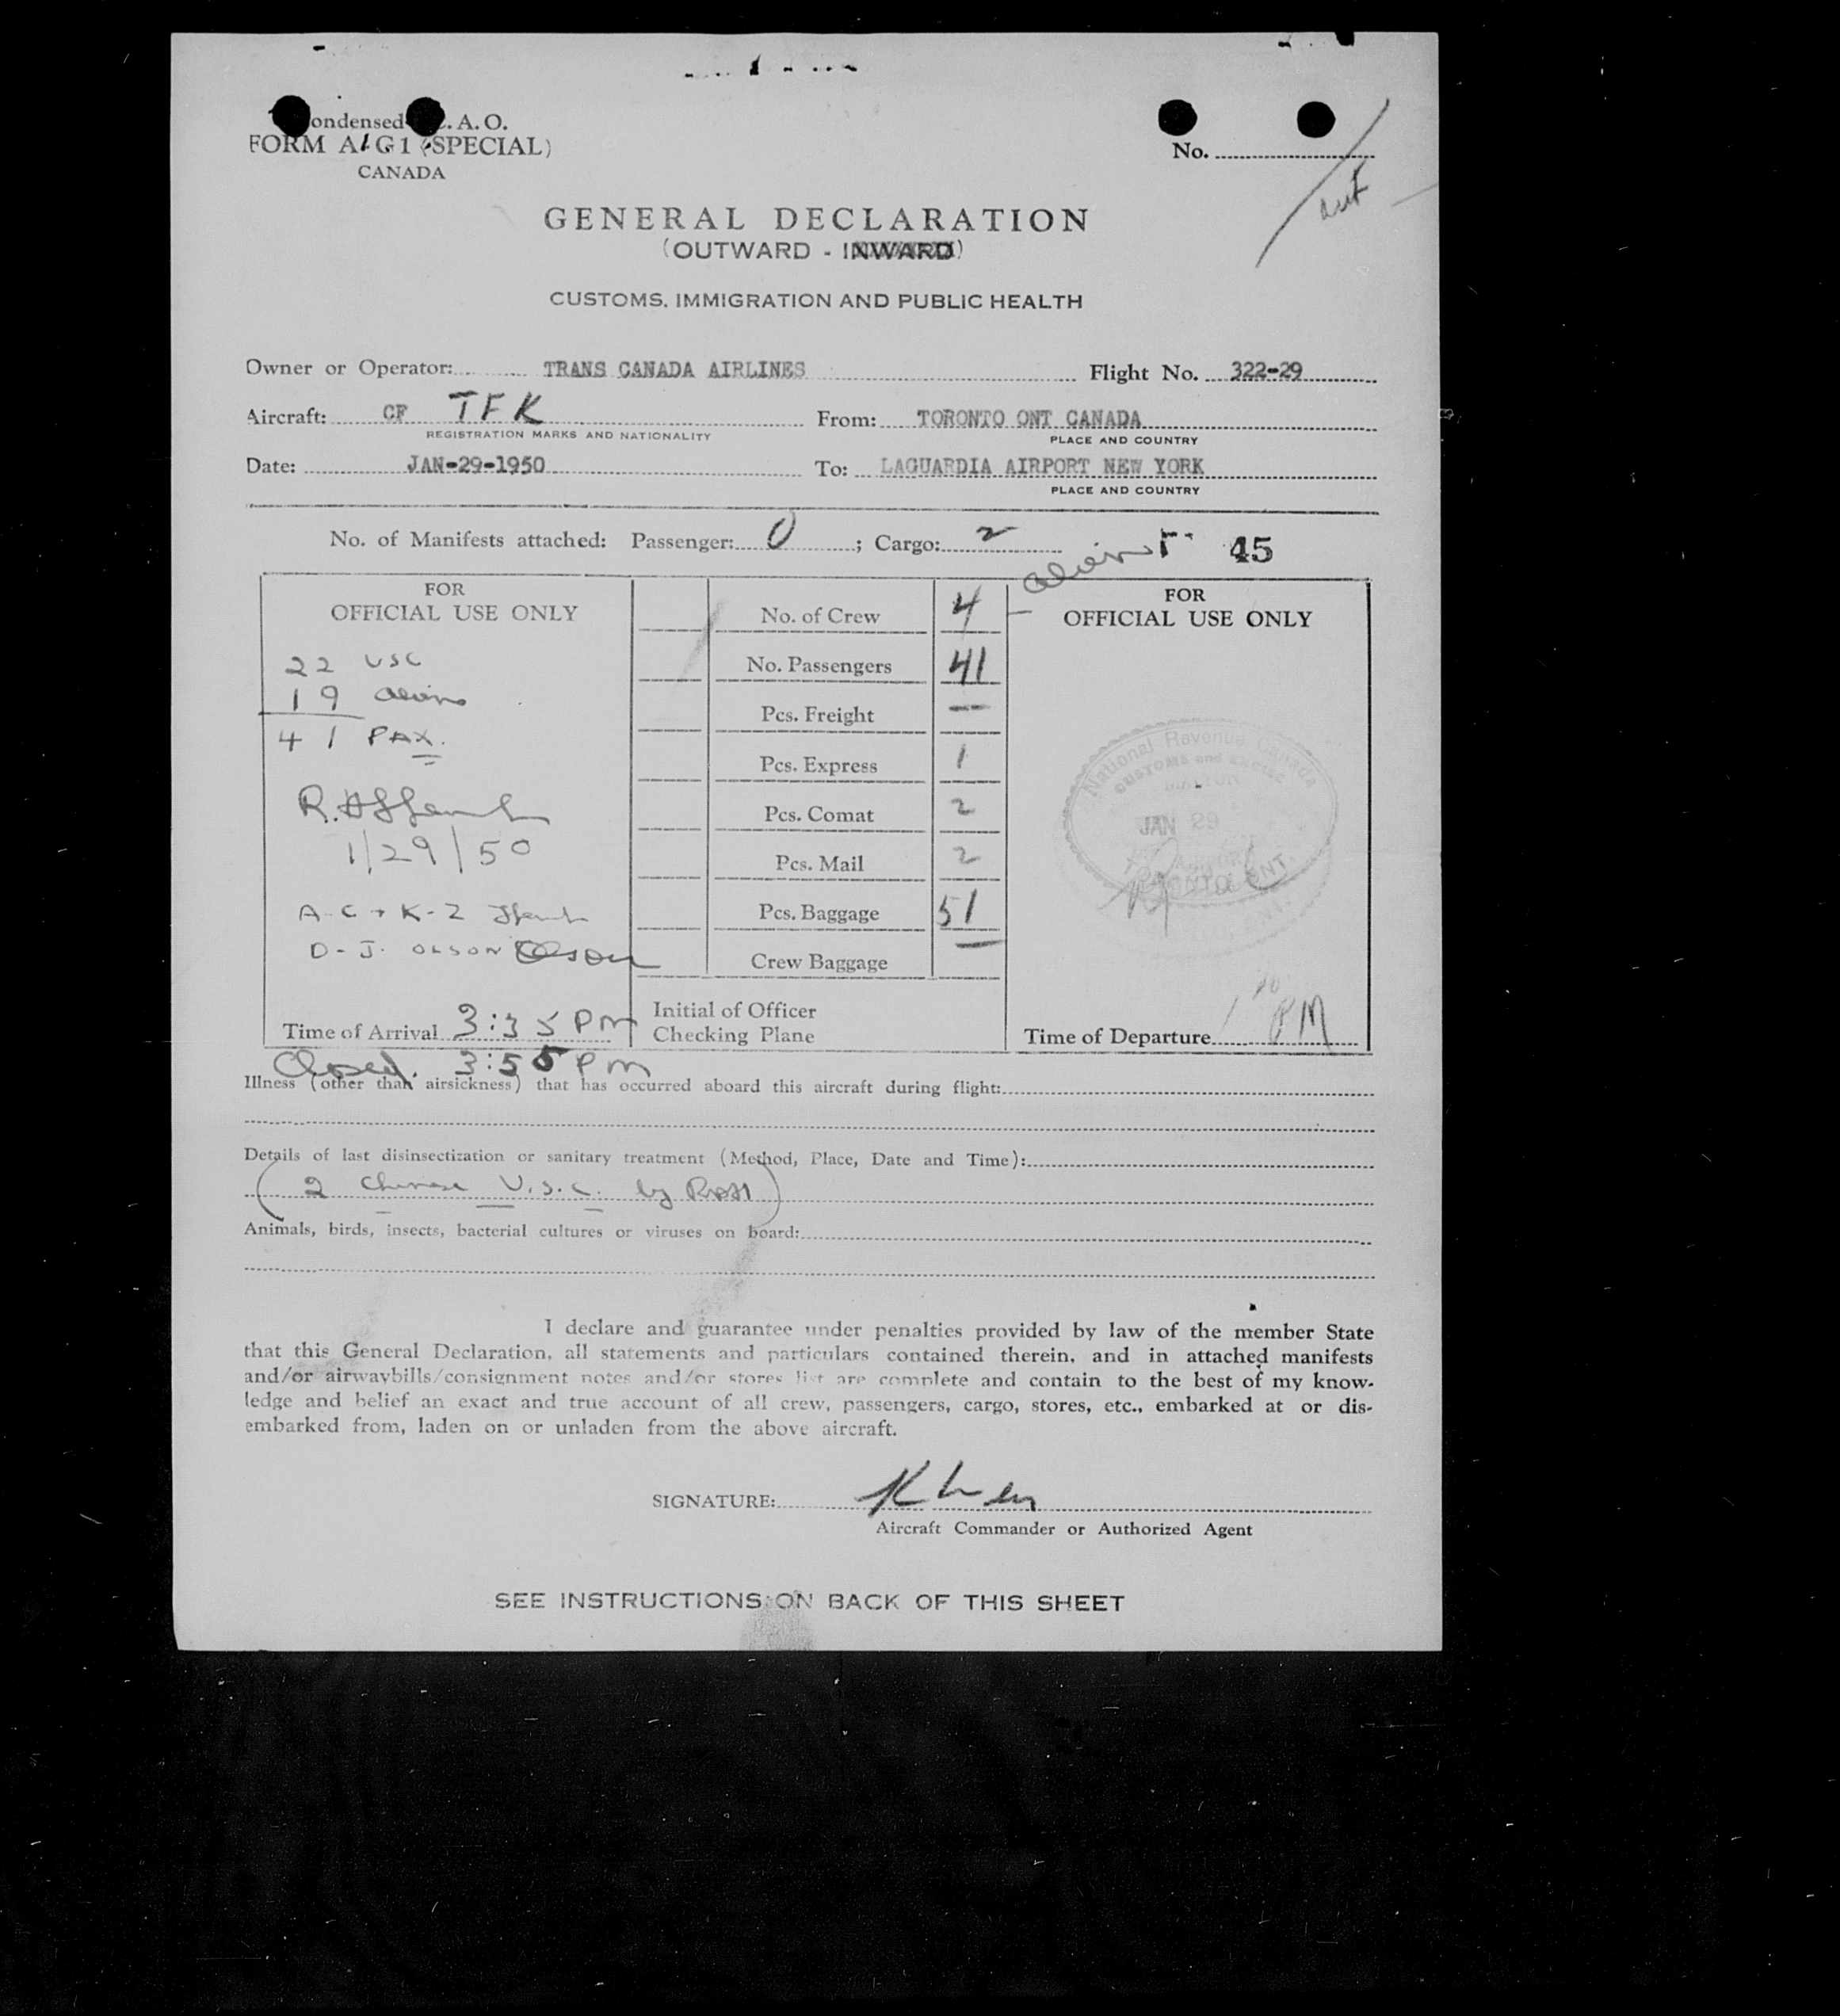 ondensed . A. O.
FORM A/G1 (SPECIAL)
CANADA
No.
out
GENERAL DECLARATION
(OUTWARD - INWARD)
CUSTOMS, IMMIGRATION AND PUBLIC HEALTH
Owner or Operator: TRANS CANADA AIRLINES Flight No. 322-29
Aircraft: CF TFK From: TORONTO ONT CANADA
REGISTRATION MARKS AND NATIONALITY PLACE AND COUNTRY
Date: JAN-29-1950 To: LAGUARDIA AIRPORT NEW YORK
PLACE AND COUNTRY
No. of Manifests attached: Passenger: 0 ; Cargo: 2
45
FOR
OFFICIAL USE ONLY
22 USC
19 aliens
41 PAX.
1/29/50
A-C + K-Z
D-J. OLSON Olson
Time of Arrival 3:35 PM
Closed. 3:55 PM
No. of Crew 4
No. Passengers 41
Pcs. Freight —
Pcs. Express 1
Pcs. Comat 2
Pcs. Mail 2
Pcs. Baggage 51
Crew Baggage
Initial of Officer
Checking Plane
FOR
OFFICIAL USE ONLY
National Revenue Canada
CUSTOMS and EXCISE
JAN 29
TORONTO, ONT.
Time of Departure PM
Illness (other than airsickness) that has occurred aboard this aircraft during flight:
Details of last disinsectization or sanitary treatment (Method, Place, Date and Time):
(2 Chinese U.S.C. by)
Animals, birds, insects, bacterial cultures or viruses on board:
I declare and guarantee under penalties provided by law of the member State
that this General Declaration, all statements and particulars contained therein, and in attached manifests
and/or airwaybills/consignment notes and/or stores list are complete and contain to the best of my know-
ledge and belief an exact and true account of all crew, passengers, cargo, stores, etc., embarked at or dis-
embarked from, laden on or unladen from the above aircraft.
SIGNATURE:
Aircraft Commander or Authorized Agent
SEE INSTRUCTIONS ON BACK OF THIS SHEET